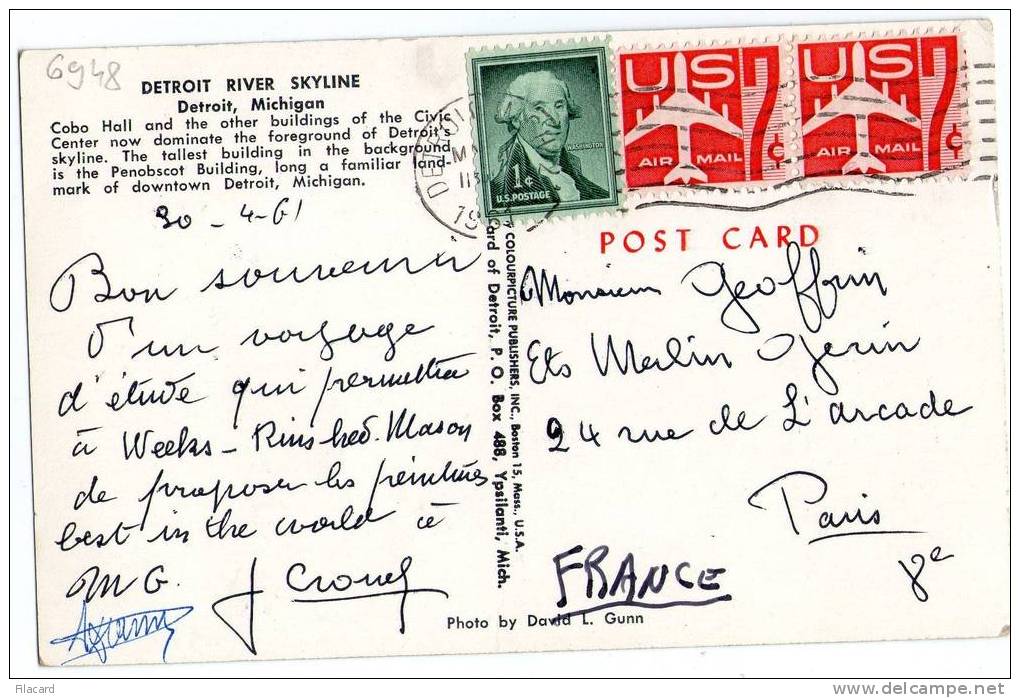 6948
DETROIT RIVER SKYLINE
Detroit, Michigan
Cobo Hall and the other buildings of the Civic
Center now dominate the foreground of Detroit's
skyline. The tallest building in the background
is the Penobscot Building, long a familiar land-
mark of downtown Detroit, Michigan.
30-4-61
Bon souvenir
d'un voyage
d'étude qui permettra
à Weeks-Rinshed-Mason
de proposer les peintures
best in the world à
MG.
WASHINGTON
1¢
U.S. POSTAGE
US 7¢
AIR MAIL
US 7¢
AIR MAIL
POST CARD
COLOURPICTURE PUBLISHERS, INC., Boston 15, Mass., U.S.A.
ard of Detroit, P. O. Box 488, Ypsilanti, Mich.
Monsieur Geoffrin
Ets Merlin Gerin
24 rue de L'arcade
Paris
8e
FRANCE
Photo by David L. Gunn
Filacard
www.delcampe.net